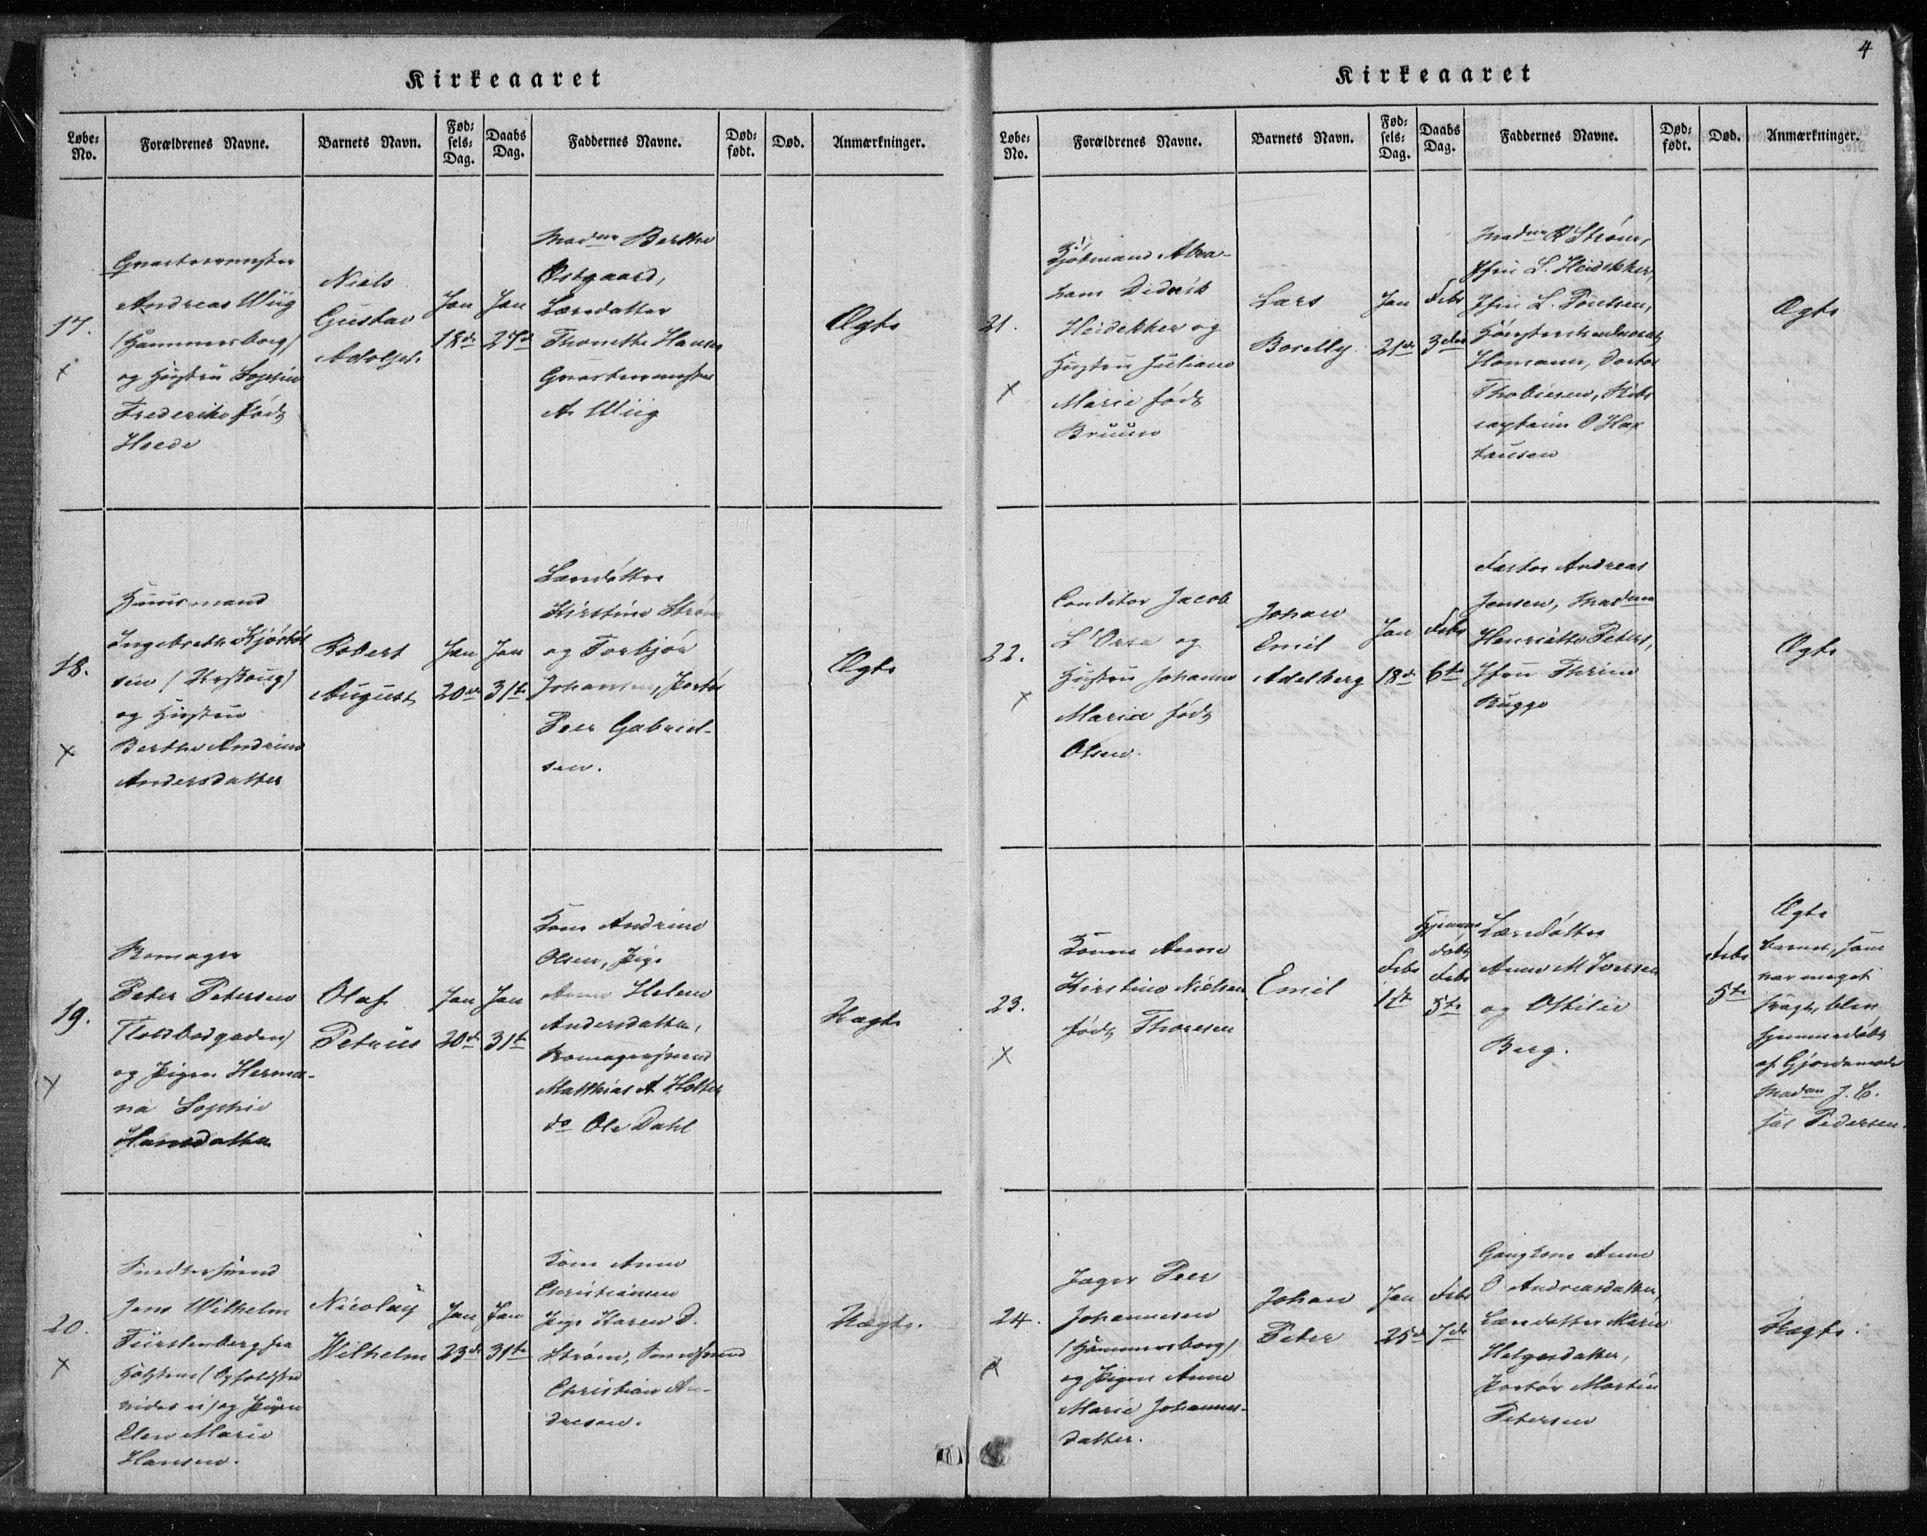 Kirkeaaret
Løbe-No. Forældrenes Navne. Barnets Navn. Fødsels-Dag. Daabs Dag. Faddernes Navne. Dødfødt. Død. Anmærkninger.
17.
Andreas Wiig
(Hammersborg)
og Hustru Sophie
Frederike født
Niels
Gustav
Adolph
Jan
18de
Jan
27de
Madme Berthe
Østgaard,
Thonette Hansen
A. Wiig
Ægte
18.
Huusmand
og Hustru
Berthe Andrine
Andersdatter
Robert
August
Jan
20de
Jan
31te
Kirstine Strøm
og Torbjør
Johansen,
Peer Gabriel-
sen.
Ægte
19.
Peter Petersen
og Pigen Herma-
na Sophie
Hansdatter
Olaf
Petrius
Jan
20de
Jan
31te
Kone Andrine
Olsen, Pige
Anne Helene
Andersdatter,
Matthias A Holter
do Ole Dahl
Uægte
20.
Jens Wilhelm
Fürstenberg fra
Holsteen (Opholdssted
vides ei) og Pigen
Elen Marie
Hansen.
Nicolay
Wilhelm
Jan
23de
Jan
31te
Kone Anne
Christiansen
Pige Karen D.
Strøm,
Christian An-
dresen.
Uægte.
4
Kirkeaaret
Løbe-No. Forældrenes Navne. Barnets Navn. Fødsels-Dag. Daabs Dag. Faddernes Navne. Dødfødt. Død. Anmærkninger.
21.
Kjøbmand Abra-
ham Didrik
Heidekker og
Hustru Juliane
Marie født
Bruun
Lars
Borelly
Jan
21de
Febr
3die
Madme Strøm,
Jfru L. Heidekker,
Jfru L. Poulsen,
Homann, Doctor
Thobiesen,
O Hax
hausen
Ægte
22.
Conditor Jacob
L'Orsa og
Hustru Johanne
Maria født
Olsen.
Johan
Emil
Adelberg
Jan
18de
Febr
6te
Andreas
Jensen, Madme
Henriette Peters,
Jfru Thrine
Rugge
Ægte
23.
Konen Anne
Kirstine Nielsen
født Thoresen
Emil
Febr
1te
Hjemme
døbt
Febr
5te
Anne M Iversen
og Ottilie
Berg.
Febr
5te
Ægte
Barnet, som
var meget
svagt, blev
hjemmedøbt
af Gjordemoder
Madam J. C.
Pedersen.
24.
Peer
Johannesen
(Hammersborg)
og Pigen Anne
Marie Johannes-
datter.
Johan
Peter
Jan
25de
Febr
7de
Gangkone Anne
O Andreasdatter,
Marie
Helgesdatter,
Martin
Petersen
Uægte.